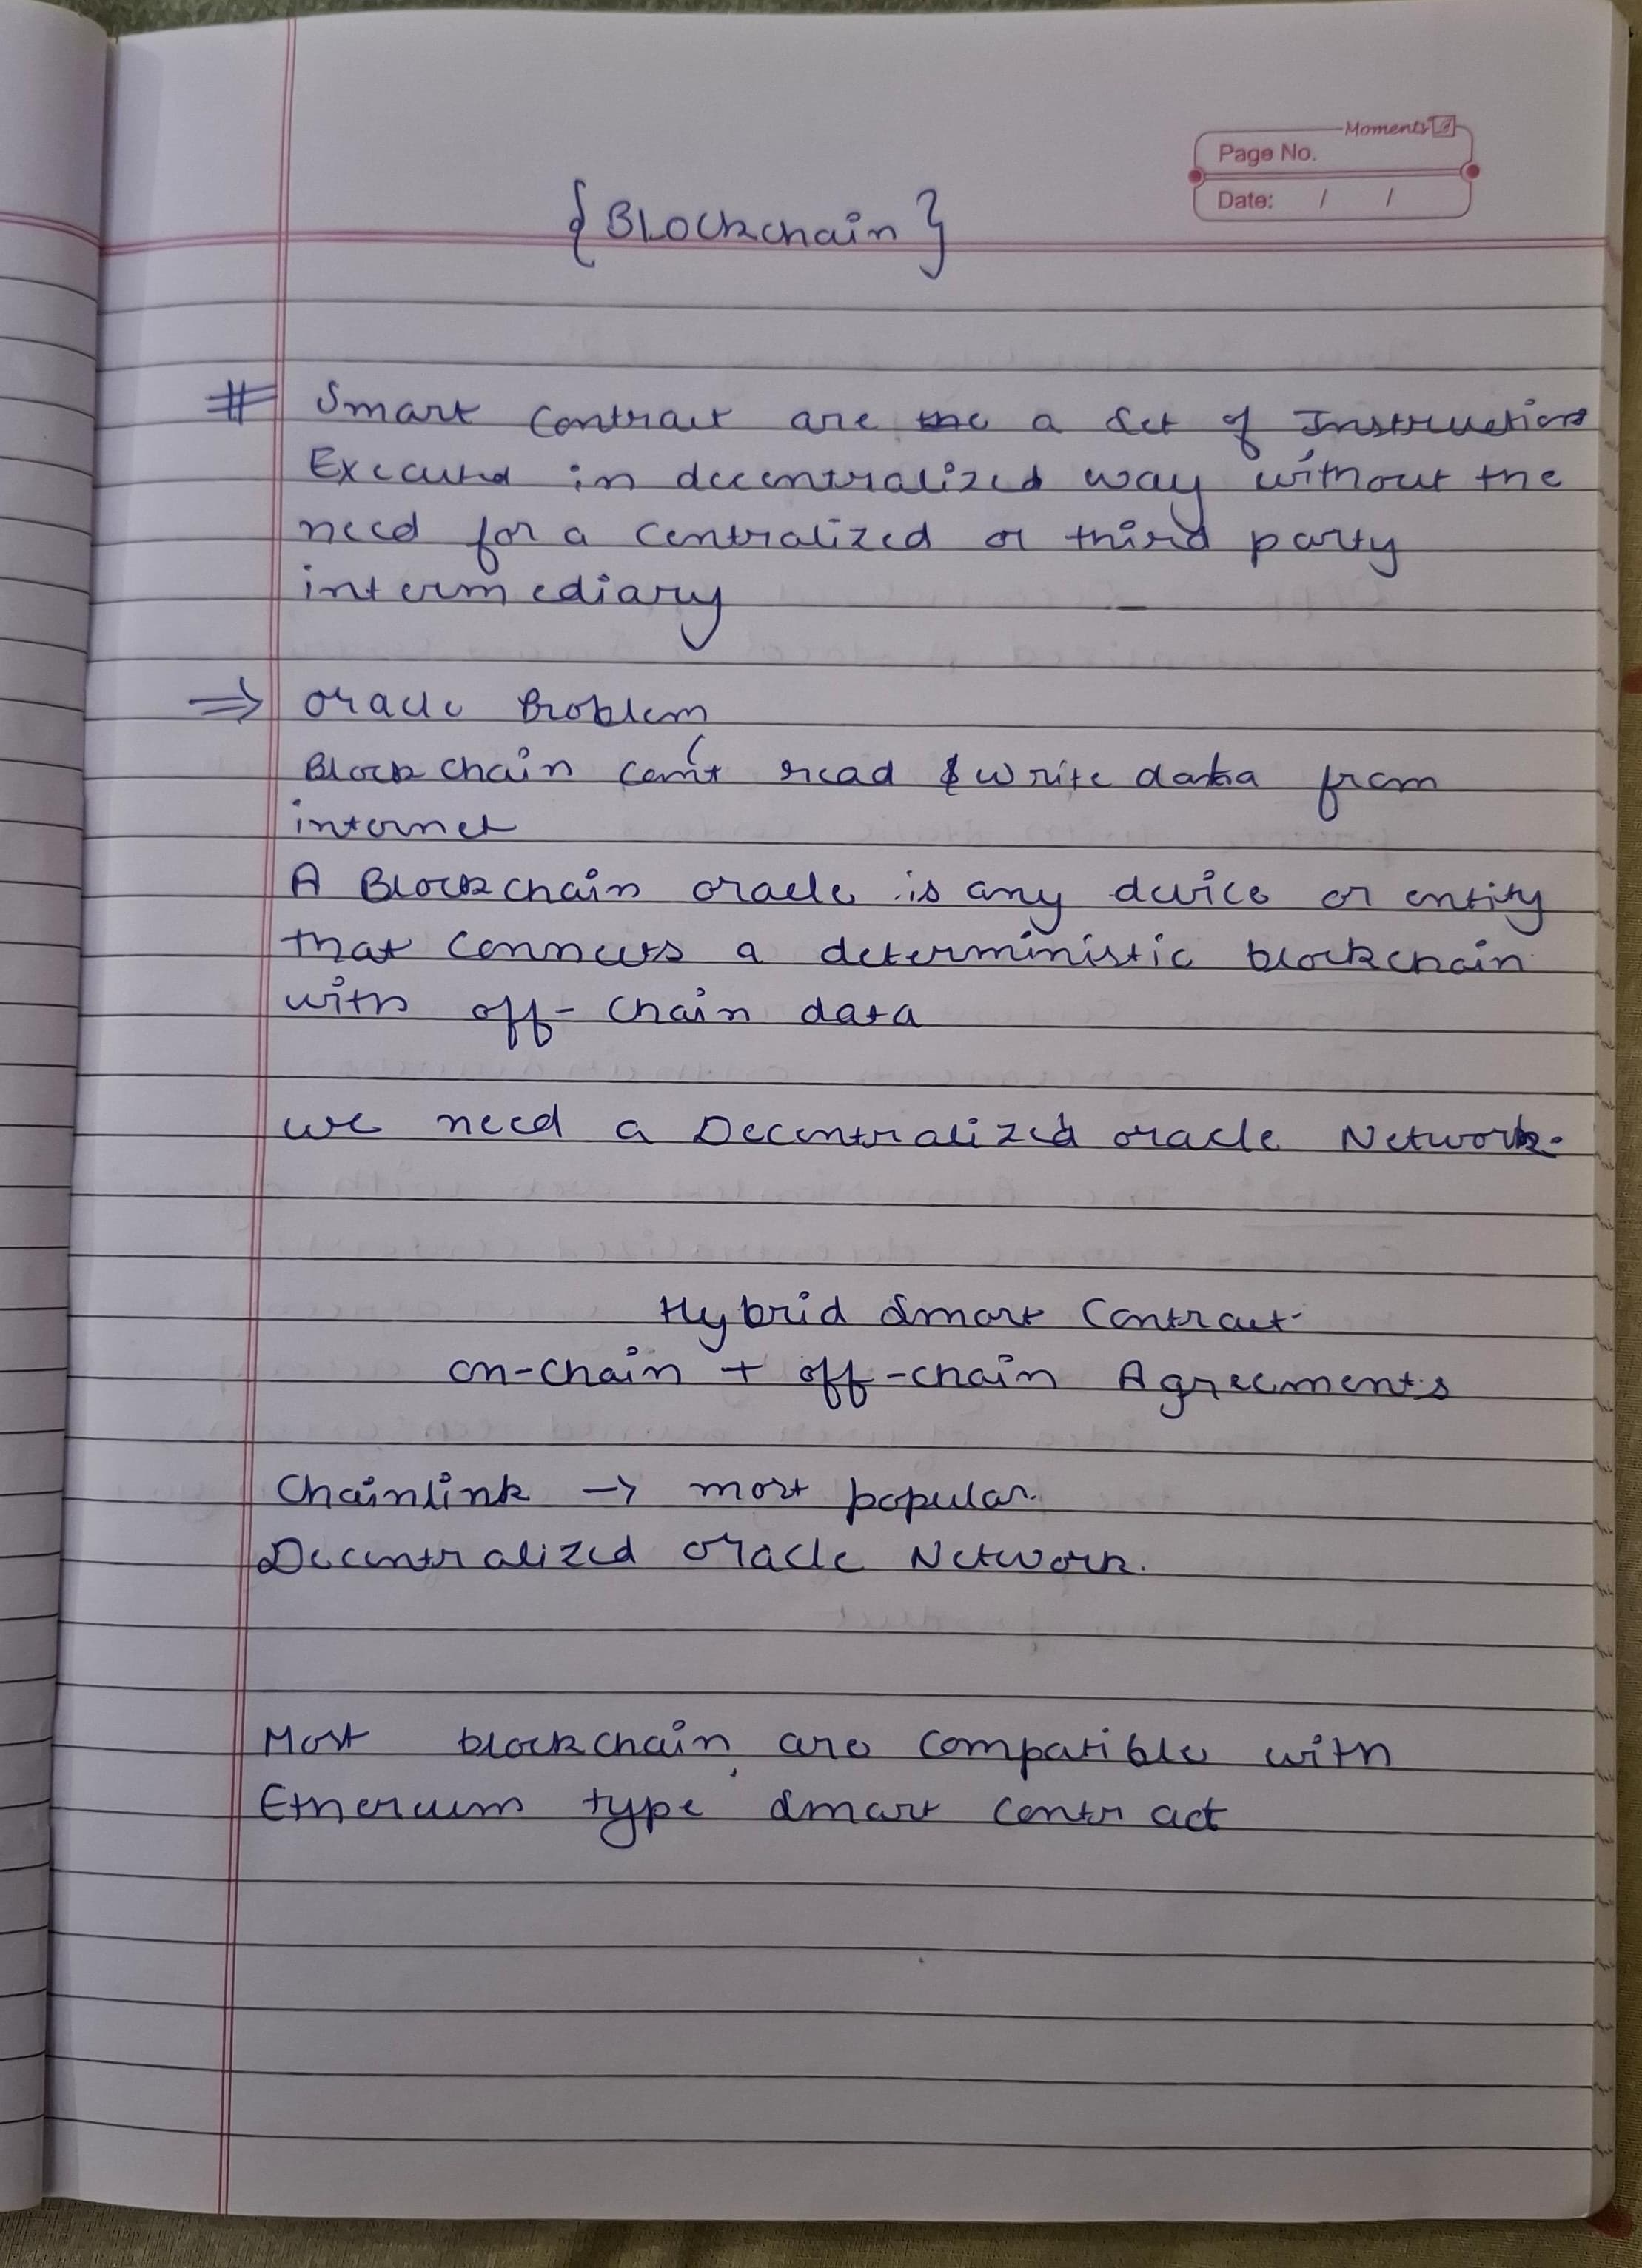 Moments
Page No.
Date: / /
{Blockchain}
# Smart Contract are the a Set of Instructions
Executed in decentralized way without the
need for a centralized or third party
intermediary
⇒ Oracle Problem
Blockchain can't read & write data from
internet
A Blockchain oracle is any device or entity
that connects a deterministic blockchain
with off-chain data
we need a Decentralized oracle Network.
Hybrid Smart Contract
on-chain + off-chain Agreements
Chainlink → most popular
Decentralized Oracle Network.
Most blockchain are compatible with
Ethereum type smart contract